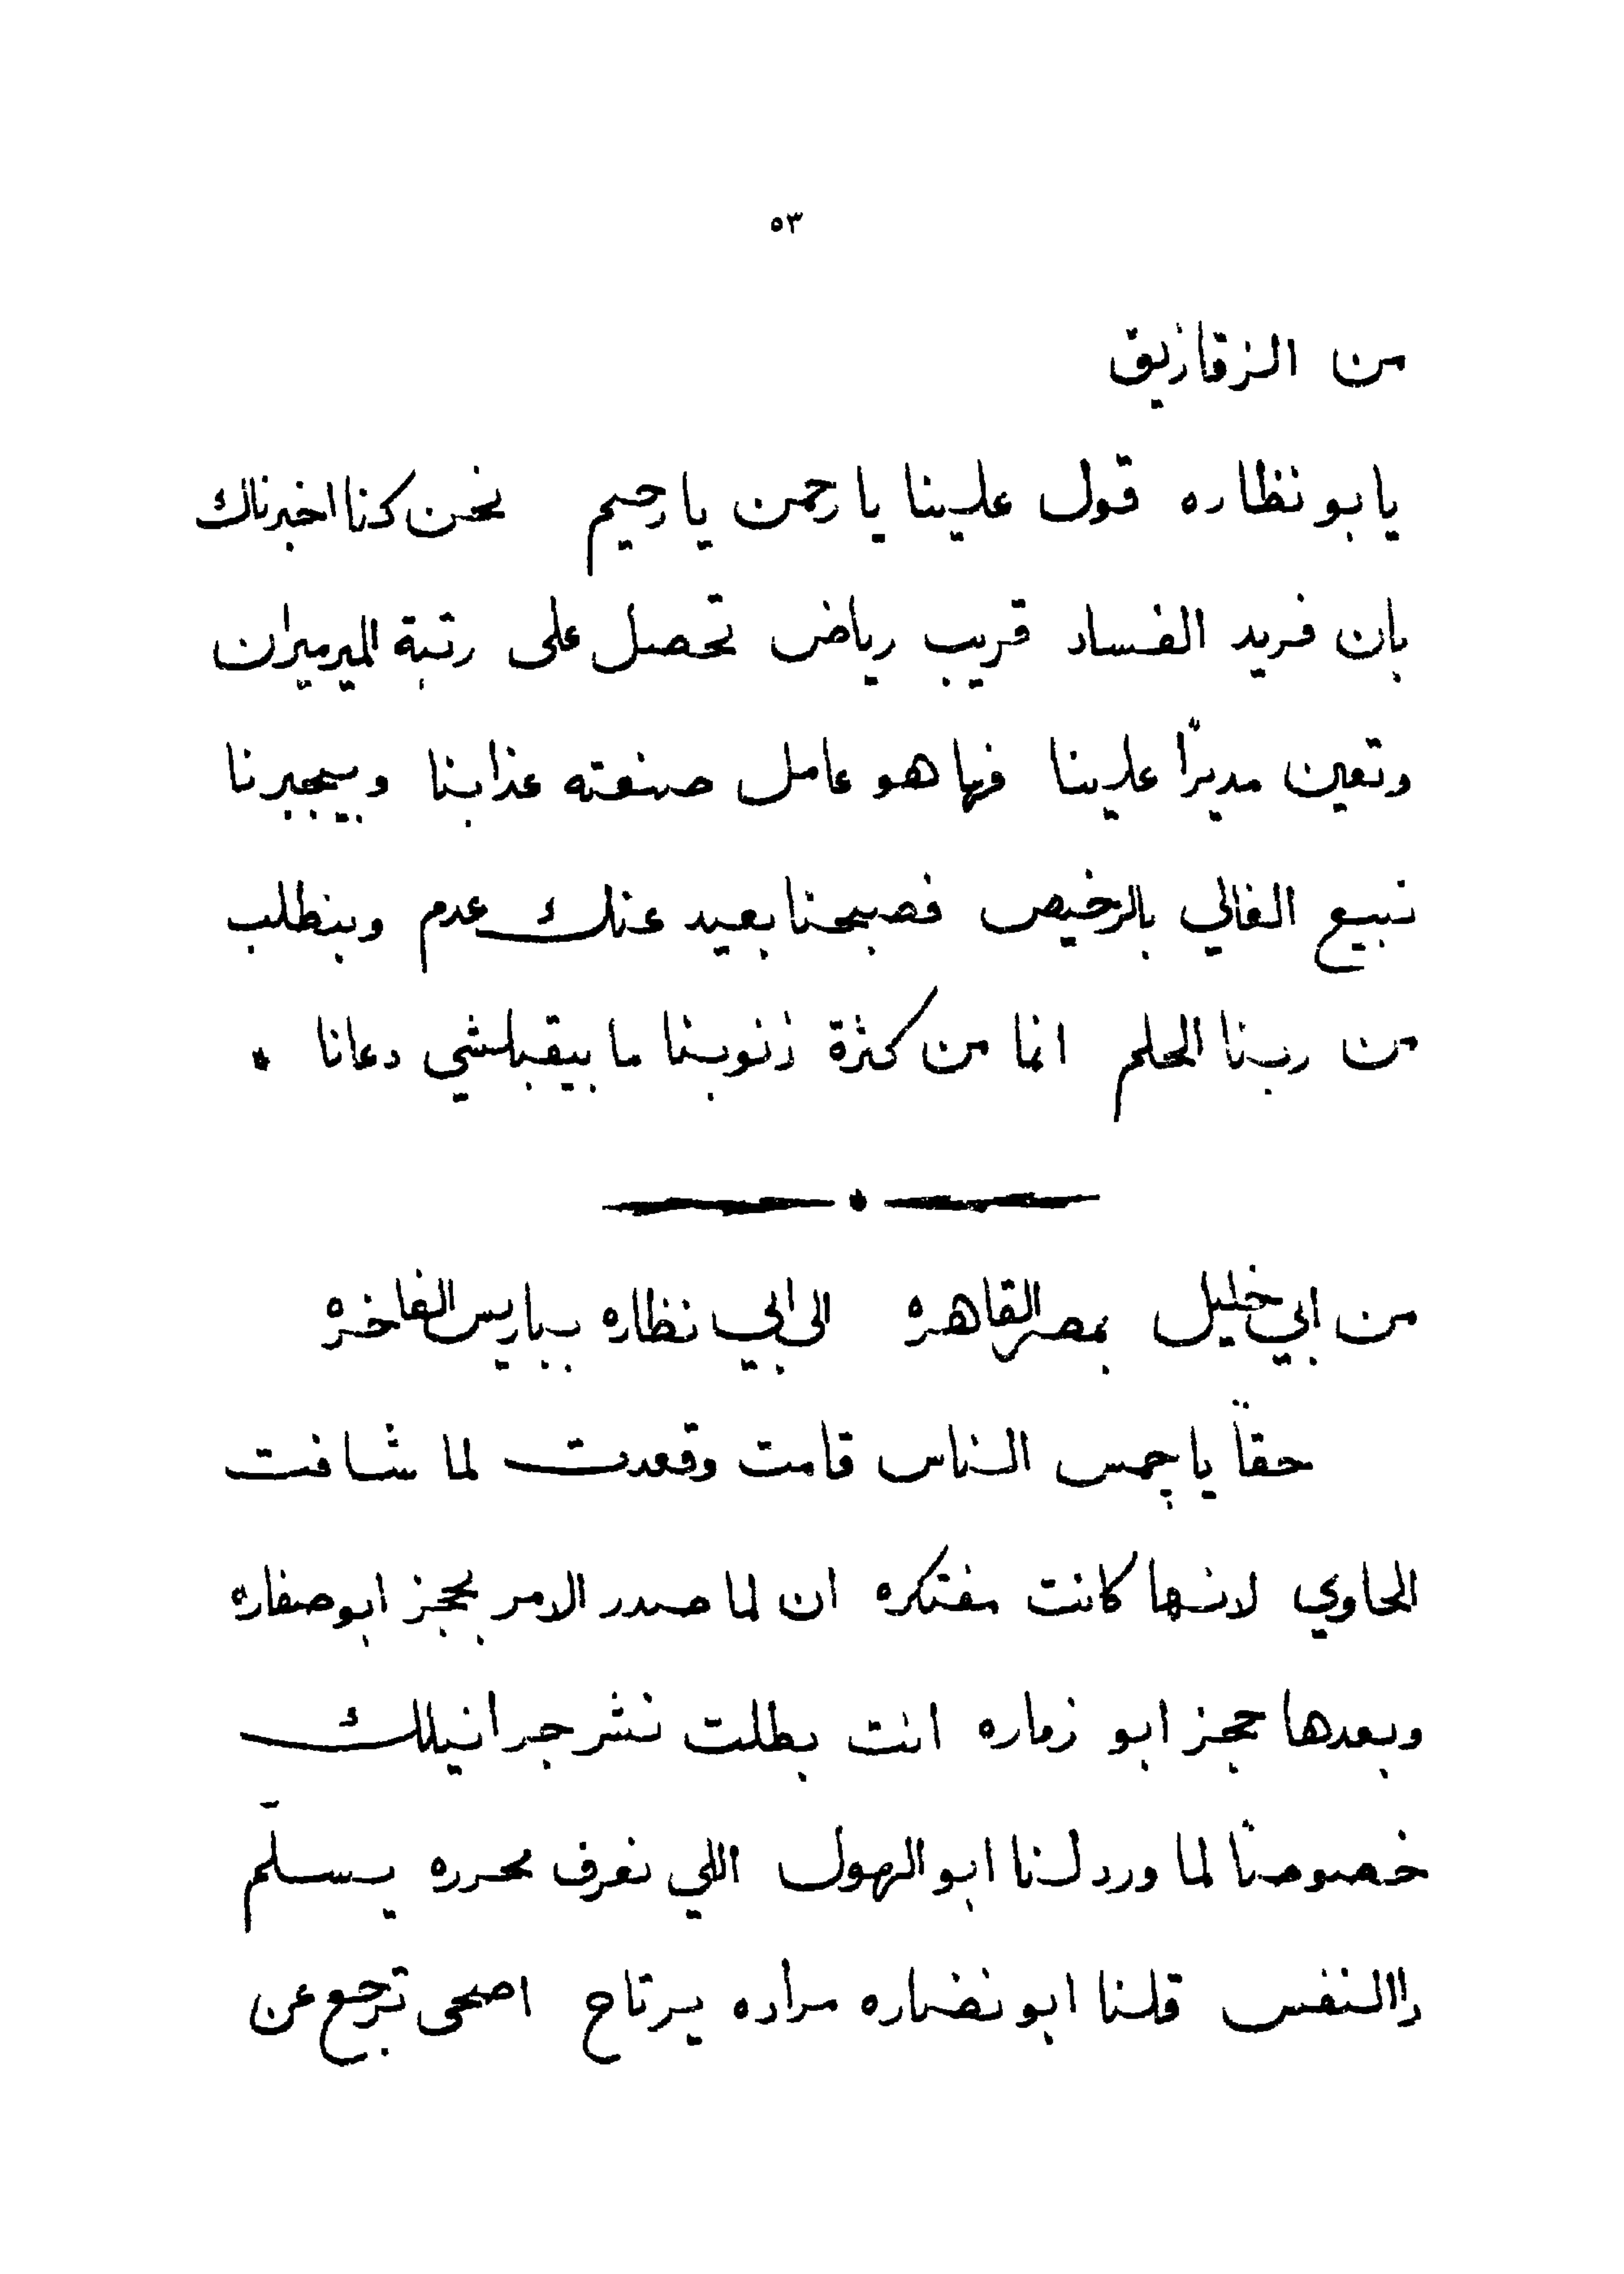 ٥٣
من الزقازيق
يابو نظاره قول علينا يا رحمن يا رحيم نحن كنا اخبرناك
بان فريد الفساد قريب رياض تحصل على رتبة الميرميران
وتعين مديرًا علينا فها هو عامل صنعته عذابنا وبيجبرنا
نبيع الغالي بالرخيص فصبحنا بعيد عنك عدم وبنطلب
من ربنا الحلم انما من كثرة ذنوبنا ما بيقبلشي دعانا *
من ابي خليل بمصر القاهره الى ابي نظاره بباريس الفاخره
حقاً يا جمس الناس قامت وقعدت لما شافت
الحاوي لانها كانت مفتكره ان لما صدر الامر بحجز ابو صفاره
وبعدها حجز ابو زماره انت بطلت نشر جرانيلك
خصوصاً لما ورد لنا ابو الهول اللي نعرف محرره يسلّم
داالنفس قلنا ابو نضاره مراده يرتاح اصحى ترجع عن